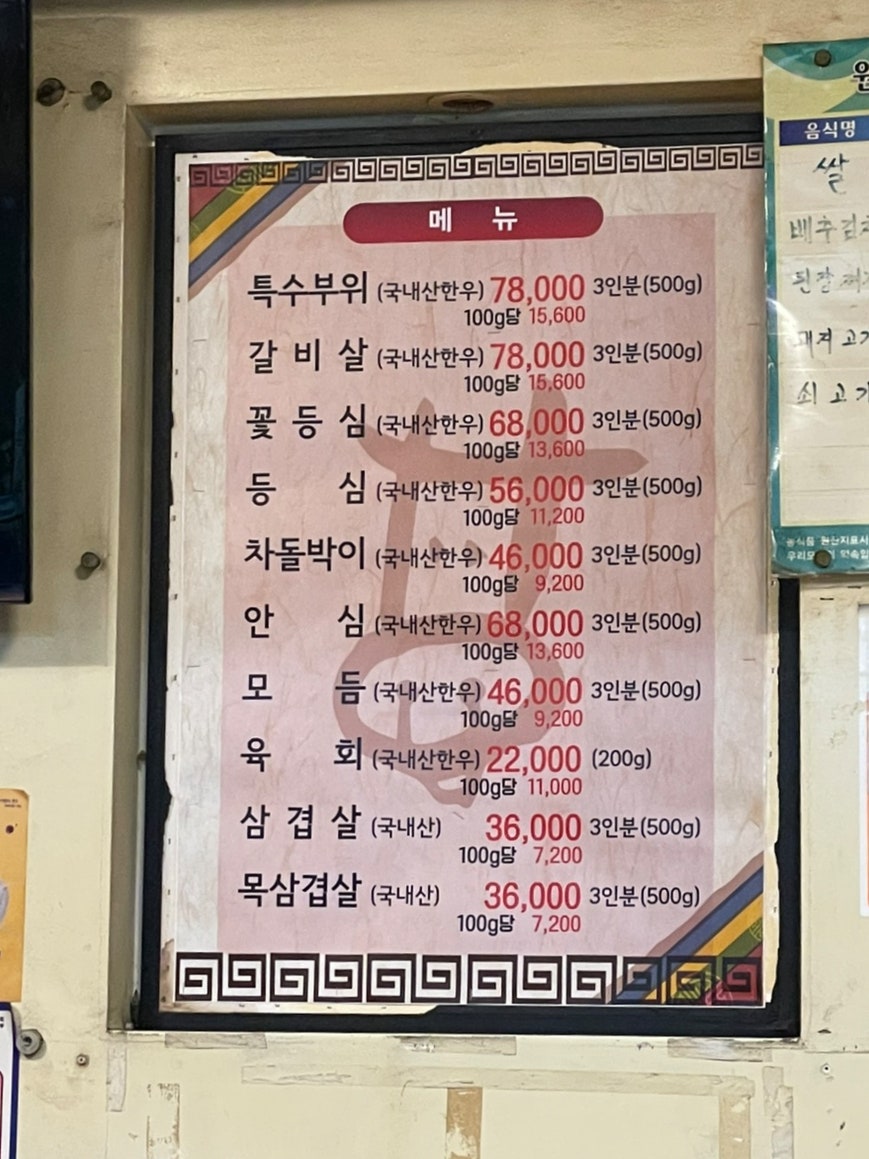 메 뉴
특수부위 (국내산한우) 78,000 3인분(500g)
100g당 15,600
갈 비 살 (국내산한우) 78,000 3인분(500g)
100g당 15,600
꽃 등 심 (국내산한우) 68,000 3인분(500g)
100g당 13,600
등 심 (국내산한우) 56,000 3인분(500g)
100g당 11,200
차돌박이 (국내산한우) 46,000 3인분(500g)
100g당 9,200
안 심 (국내산한우) 68,000 3인분(500g)
100g당 13,600
모 듬 (국내산한우) 46,000 3인분(500g)
100g당 9,200
육 회 (국내산한우) 22,000 (200g)
100g당 11,000
삼 겹 살 (국내산) 36,000 3인분(500g)
100g당 7,200
목삼겹살 (국내산) 36,000 3인분(500g)
100g당 7,200
음식명
쌀
배추김치
쇠고기